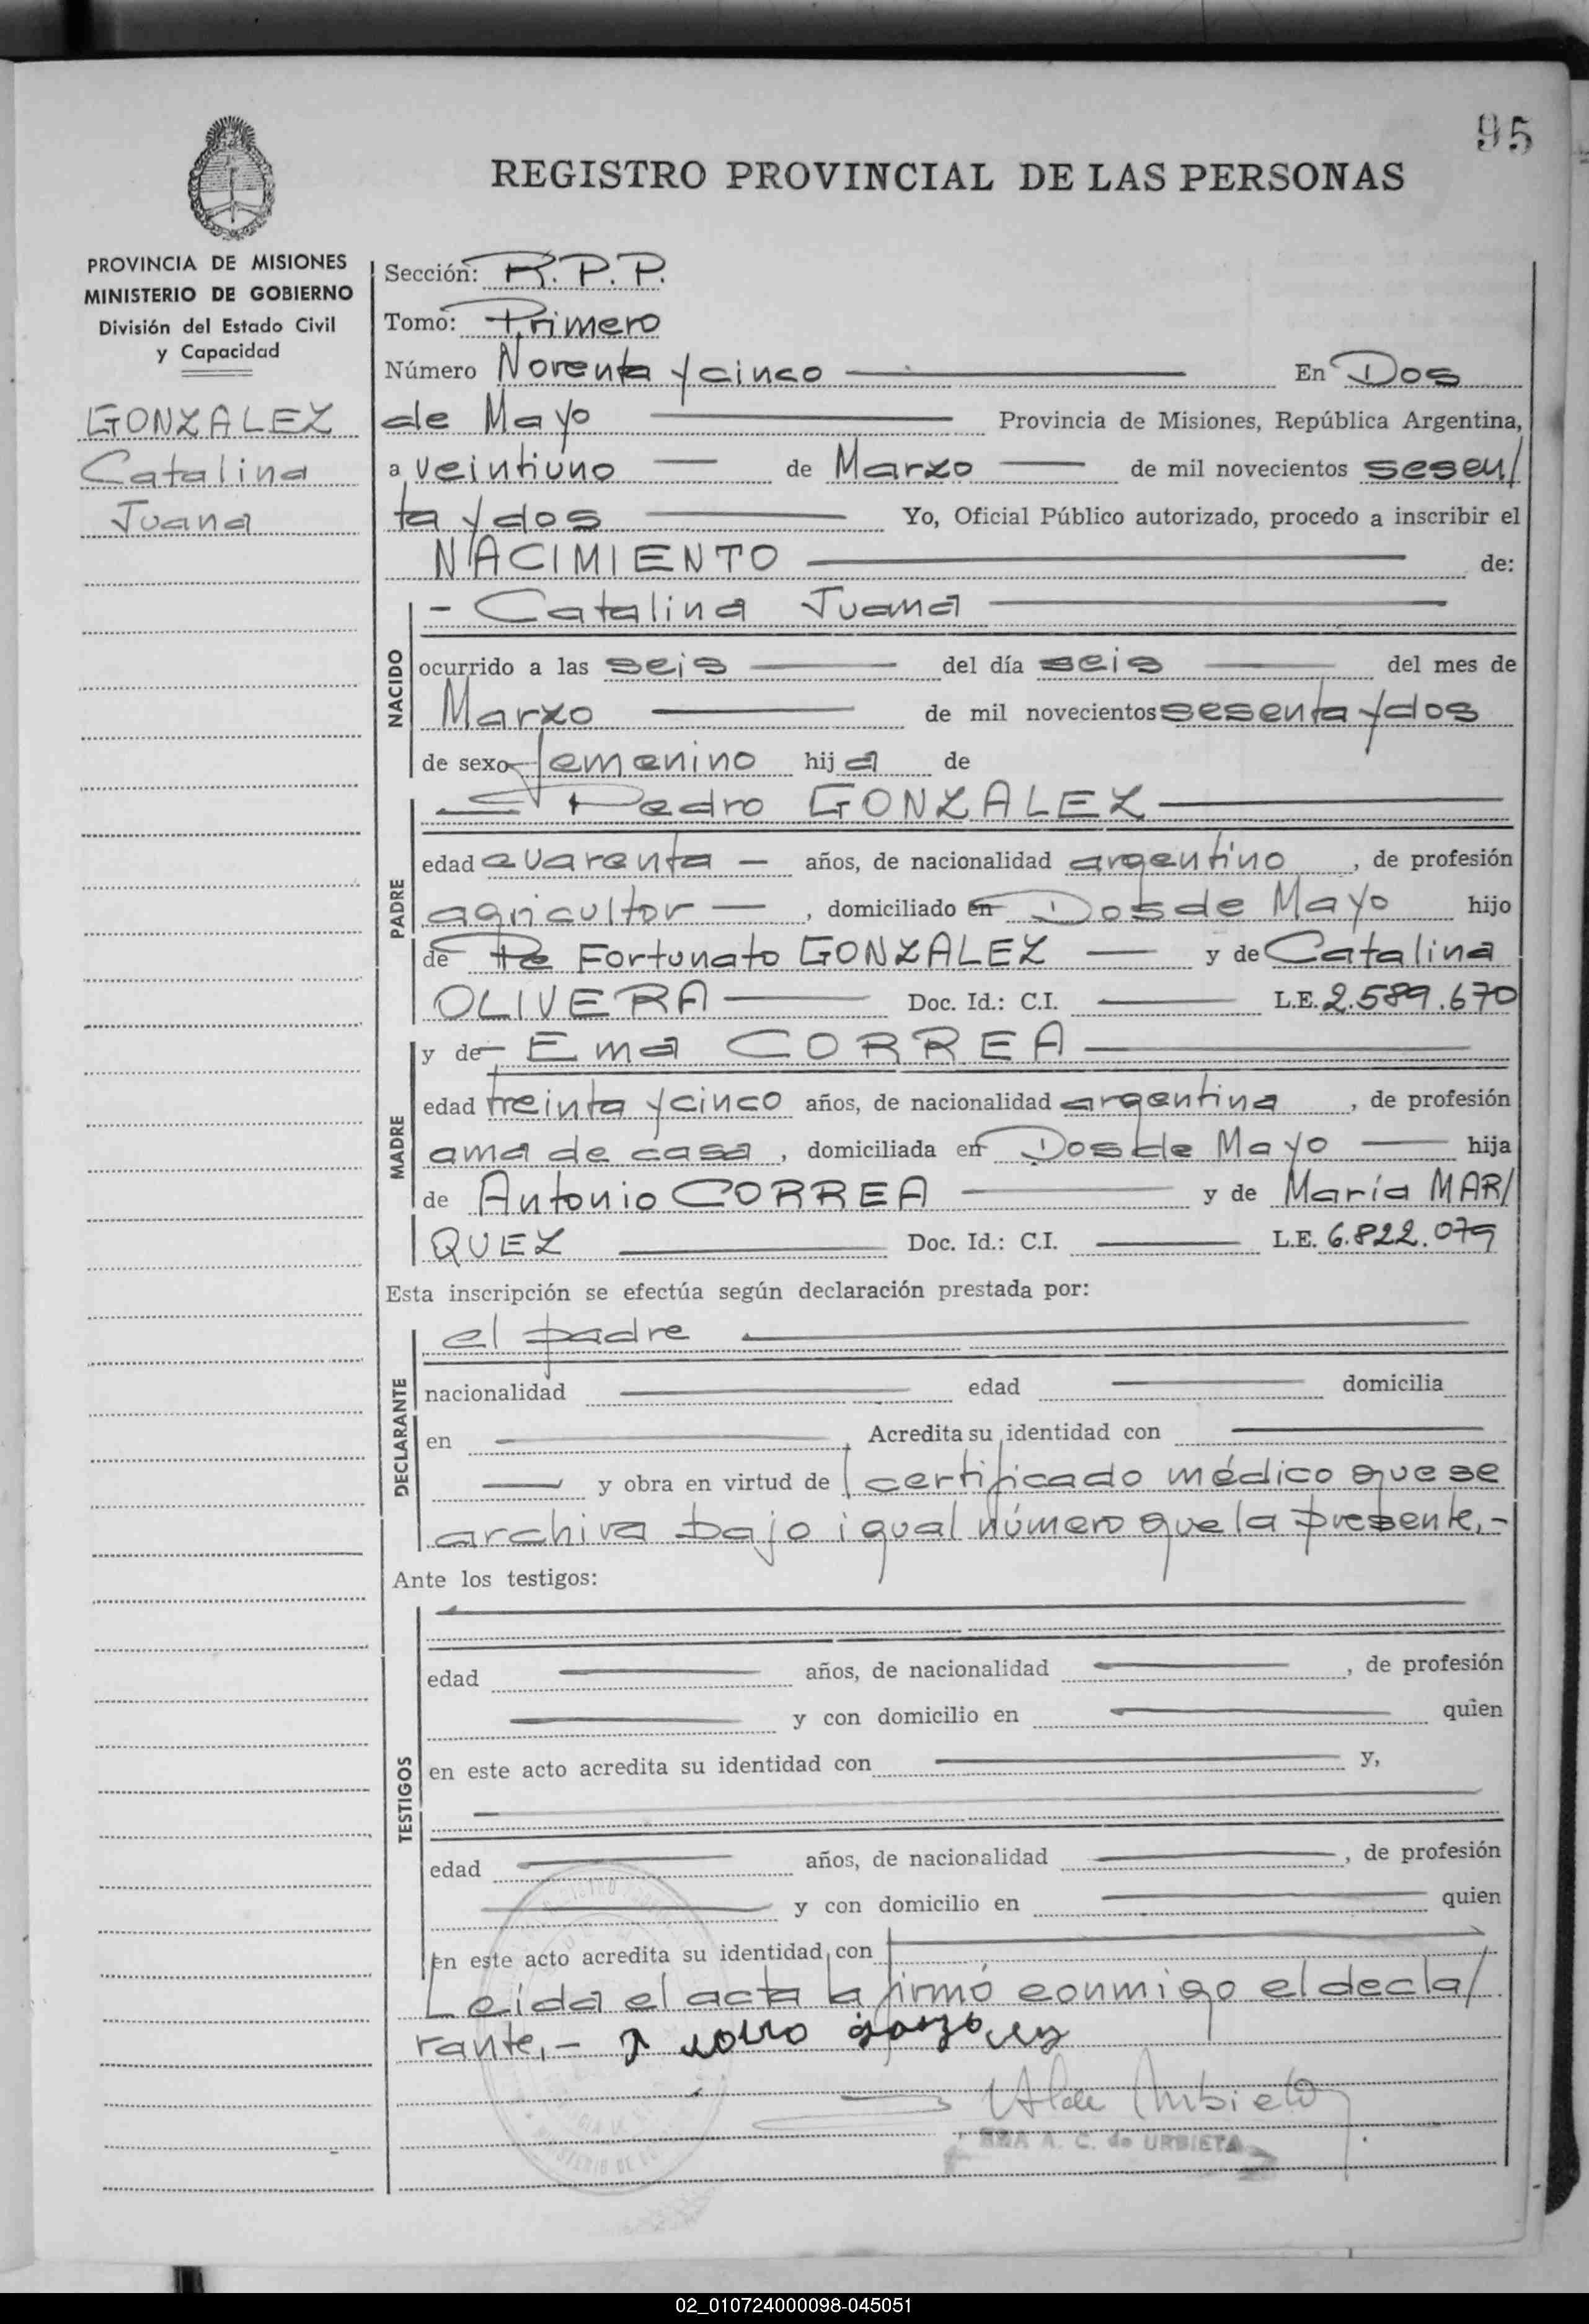 95
REGISTRO PROVINCIAL DE LAS PERSONAS
PROVINCIA DE MISIONES
MINISTERIO DE GOBIERNO
División del Estado Civil
y Capacidad
GONZALEZ
Catalina
Juana
Sección: R.P.P.
Tomo: Primero
Número Noventa y cinco En Dos
de Mayo Provincia de Misiones, República Argentina,
a veintiuno de Marzo de mil novecientos sesen/
ta y dos Yo, Oficial Público autorizado, procedo a inscribir el
NACIMIENTO de:
NACIDO
- Catalina Juana
ocurrido a las seis del día seis del mes de
Marzo de mil novecientos sesenta y dos
de sexo femenino hija de
PADRE
Pedro GONZALEZ
edad cuarenta años, de nacionalidad argentino, de profesión
agricultor, domiciliado en Dos de Mayo hijo
de Fortunato GONZALEZ y de Catalina
OLIVERA Doc. Id.: C.I. L.E. 2.589.670
MADRE
y de Ema CORREA
edad treinta y cinco años, de nacionalidad argentina, de profesión
ama de casa, domiciliada en Dos de Mayo hija
de Antonio CORREA y de María MAR/
QUEZ Doc. Id.: C.I. L.E. 6.822.079
Esta inscripción se efectúa según declaración prestada por:
DECLARANTE
el padre
nacionalidad edad domicilia
en Acredita su identidad con
y obra en virtud de certificado médico que se
archiva bajo igual número que la presente.-
Ante los testigos:
TESTIGOS
edad años, de nacionalidad , de profesión
y con domicilio en quien
en este acto acredita su identidad con y,
edad años, de nacionalidad , de profesión
y con domicilio en quien
en este acto acredita su identidad con
Leida el acta la firmó conmigo el decla/
rante.-
A. C. de URBIETA
02_010724000098-045051